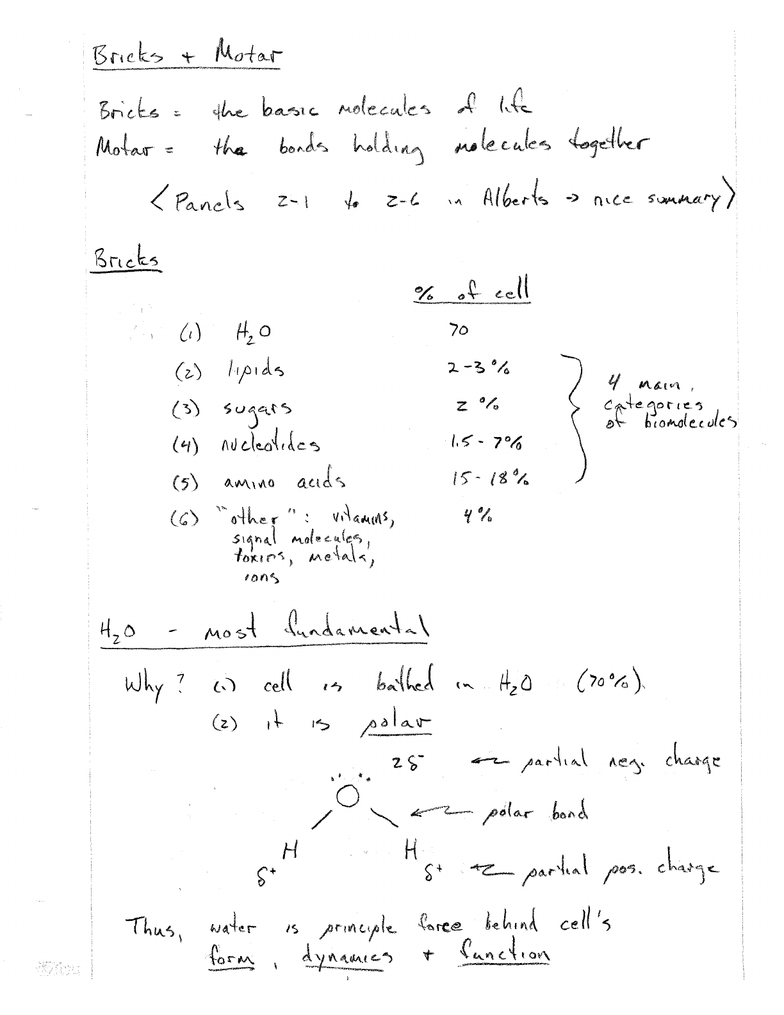 Bricks + Motar
Bricks = the basic molecules of life
Motar = the bonds holding molecules together
<Panels 2-1 to 2-6 in Alberts → nice summary>
Bricks
% of cell
(1) H₂O 70
(2) lipids 2-3%
(3) sugars 2%
(4) nucleotides 1.5-7%
(5) amino acids 15-18%
4 main
categories
of biomolecules
(6) "other": vitamins, 4%
signal molecules,
toxins, metals,
ions
H₂O - most fundamental
Why? (1) cell is bathed in H₂O (70%).
(2) it is polar
2δ⁻ ← partial neg. charge
O
← polar bond
H H
δ⁺ δ⁺ ← partial pos. charge
Thus, water is principle force behind cell's
form, dynamics + function